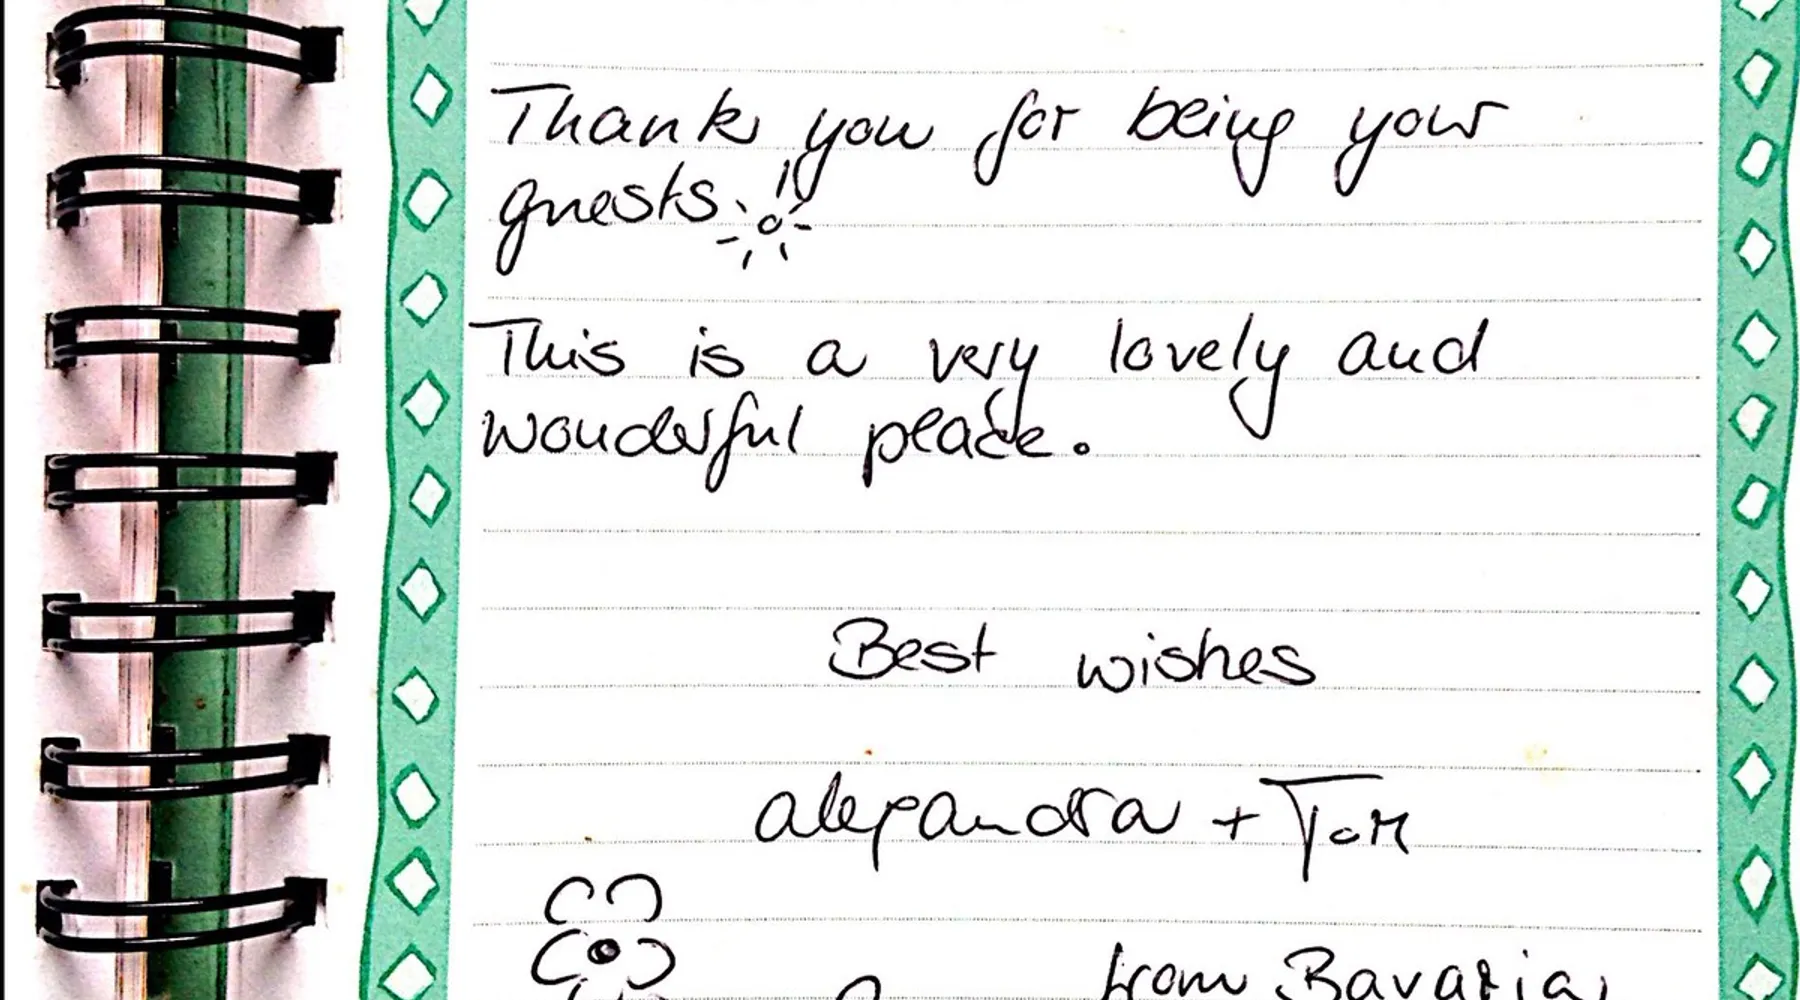 Thank you for being your
guests.
This is a very lovely and
wonderful pleace.
Best wishes
alexandra + Tom
from Bavaria